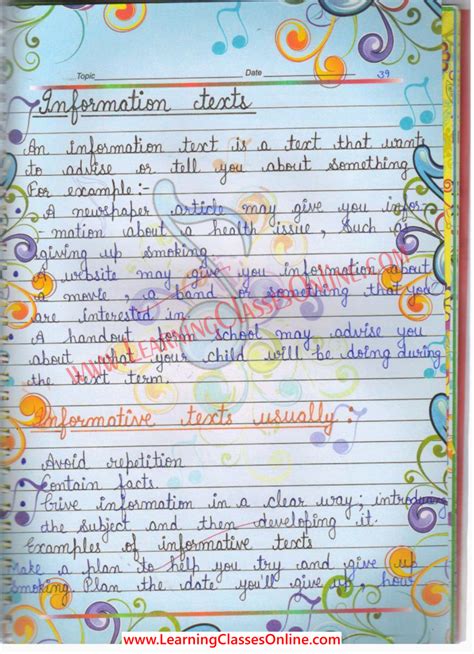 Topic
Date
39
Information texts
An information text is a text that wants
to advise or tell you about something.
For example :-
• A newspaper article may give you infor-
mation about a health issue, such as
giving up smoking
• A website may give you information about
a movie, a band or something that you
are interested in.
• A handout from school may advise you
about what your child will be doing during
the text term.
www.LearningClassesOnline.com
Informative texts usually :-
• Avoid repetition
• Contain facts
• Give information in a clear way; introducing
the subject and then developing it.
Examples of informative texts
Make a plan to help you try and give up
smoking. Plan the date you'll give up, how
www.LearningClassesOnline.com